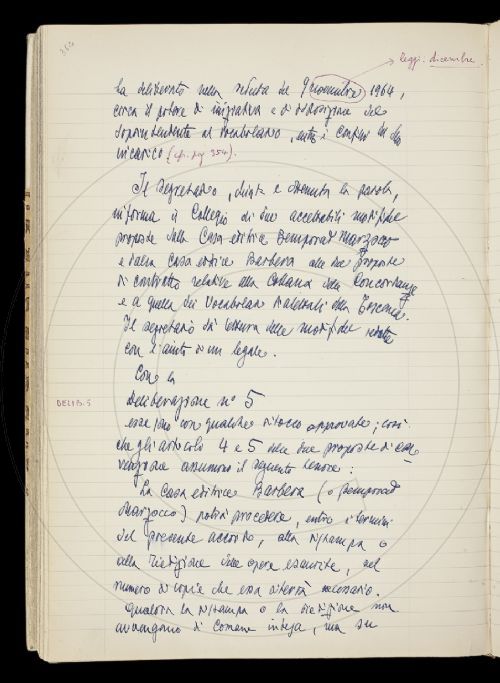 360
leggi: dicembre
ha deliberato nella seduta del 9 novembre 1964,
circa il potere di iniziativa e di disposizione del
Soprintendente al Vocabolario, entro i confini del suo
incarico (cfr. pag. 354).
Il Segretario, chiesta e ottenuta la parola,
informa il Collegio di due accettabili modifiche
proposte dalla Casa editrice Bemporad Marzocco
e dalla Casa editrice Barbera alle due proposte
di contratto relative alla Collana delle Concordanze
e a quella dei Vocabolari dialettali della Toscana.
Il segretario dà lettura delle modifiche redatte
con l'aiuto di un legale.
Con la
DELIB. 5
deliberazione n° 5
esse sono con qualche ritocco approvate; così
che gli articoli 4 e 5 delle due proposte di con-
venzione assumono il seguente tenore:
La Casa editrice Barbera (o Bemporad
Marzocco) potrà procedere, entro i termini
del presente accordo, alla ristampa o
alla riedizione delle opere esaurite, nel
numero di copie che essa riterrà necessario.
Qualora la ristampa o la riedizione non
avvengano di comune intesa, ma su